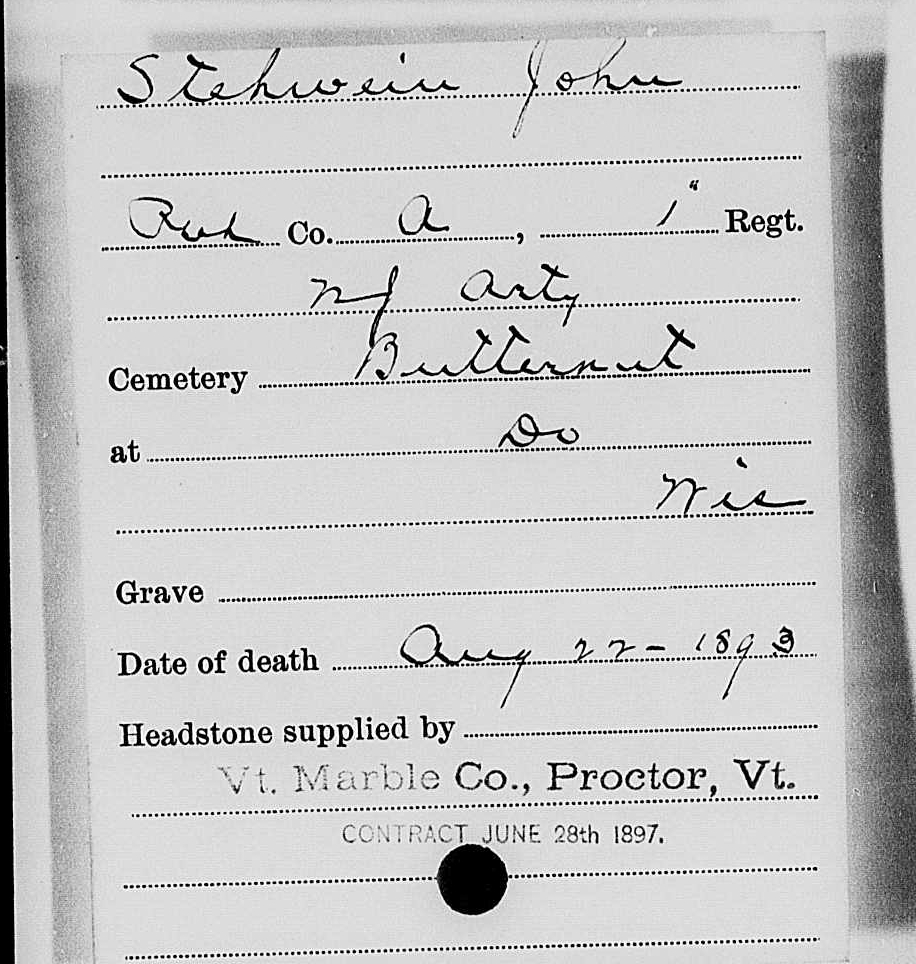 Stehwein John
Pvt Co. A, 1" Regt.
NJ Arty
Cemetery Butternut
at Do
Wis
Grave
Date of death Aug 22-1893
Headstone supplied by
Vt. Marble Co., Proctor, Vt.
CONTRACT JUNE 28th 1897.